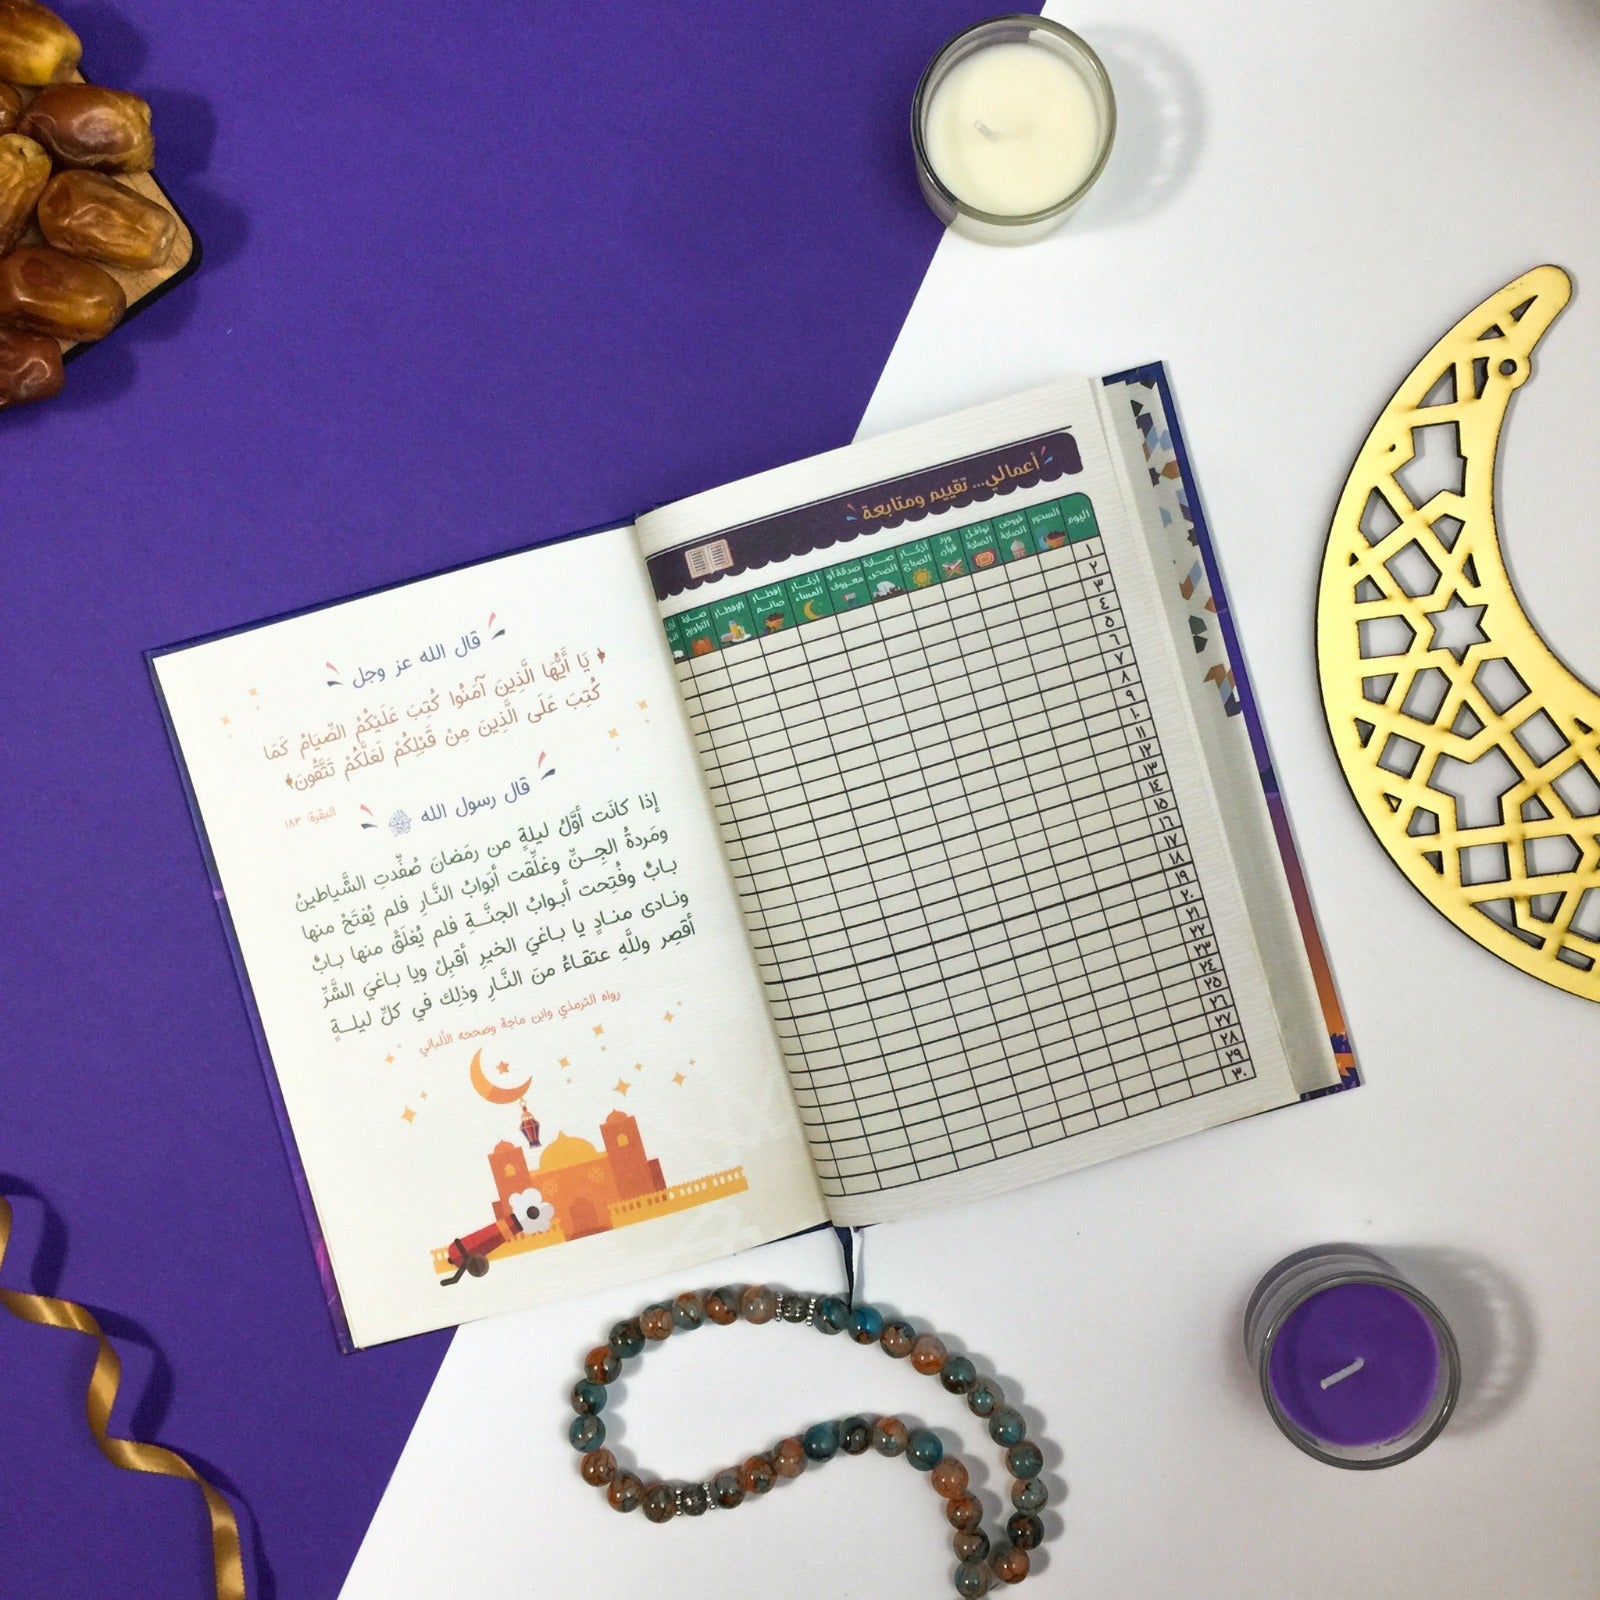 قال الله عز وجل
﴿ يَا أَيُّهَا الَّذِينَ آمَنُوا كُتِبَ عَلَيْكُمُ الصِّيَامُ كَمَا
كُتِبَ عَلَى الَّذِينَ مِنْ قَبْلِكُمْ لَعَلَّكُمْ تَتَّقُونَ﴾
البقرة: ١٨٣
قال رسول الله ﷺ
إذا كانَت أوَّلُ ليلةٍ من رمَضانَ صُفِّدتِ الشَّياطينُ
ومَردةُ الجِنِّ وغلِّقت أبَوابُ النَّارِ فلم يُفتَحْ منها
بابٌ وفُتِحت أبوابُ الجنَّةِ فلم يُغلَقْ منها بابٌ
ونادى منادٍ يا باغيَ الخيرِ أقبِلْ ويا باغيَ الشَّرِّ
أقصِر وللَّهِ عتقاءُ منَ النَّارِ وذلِك في كلِّ ليلةٍ
رواه الترمذي وابن ماجة وصححه الألباني
أعمالي... تقييم ومتابعة
اليوم
السحور
فروض الصلاة
نوافل الصلاة
ورد قرآن
أذكار الصباح
صلاة الضحى
صدقة أو معروف
أذكار المساء
إفطار صائم
الإفطار
صلاة التراويح
١
٢
٣
٤
٥
٦
٧
٨
٩
١٠
١١
١٢
١٣
١٤
١٥
١٦
١٧
١٨
١٩
٢٠
٢١
٢٢
٢٣
٢٤
٢٥
٢٦
٢٧
٢٨
٢٩
٣٠